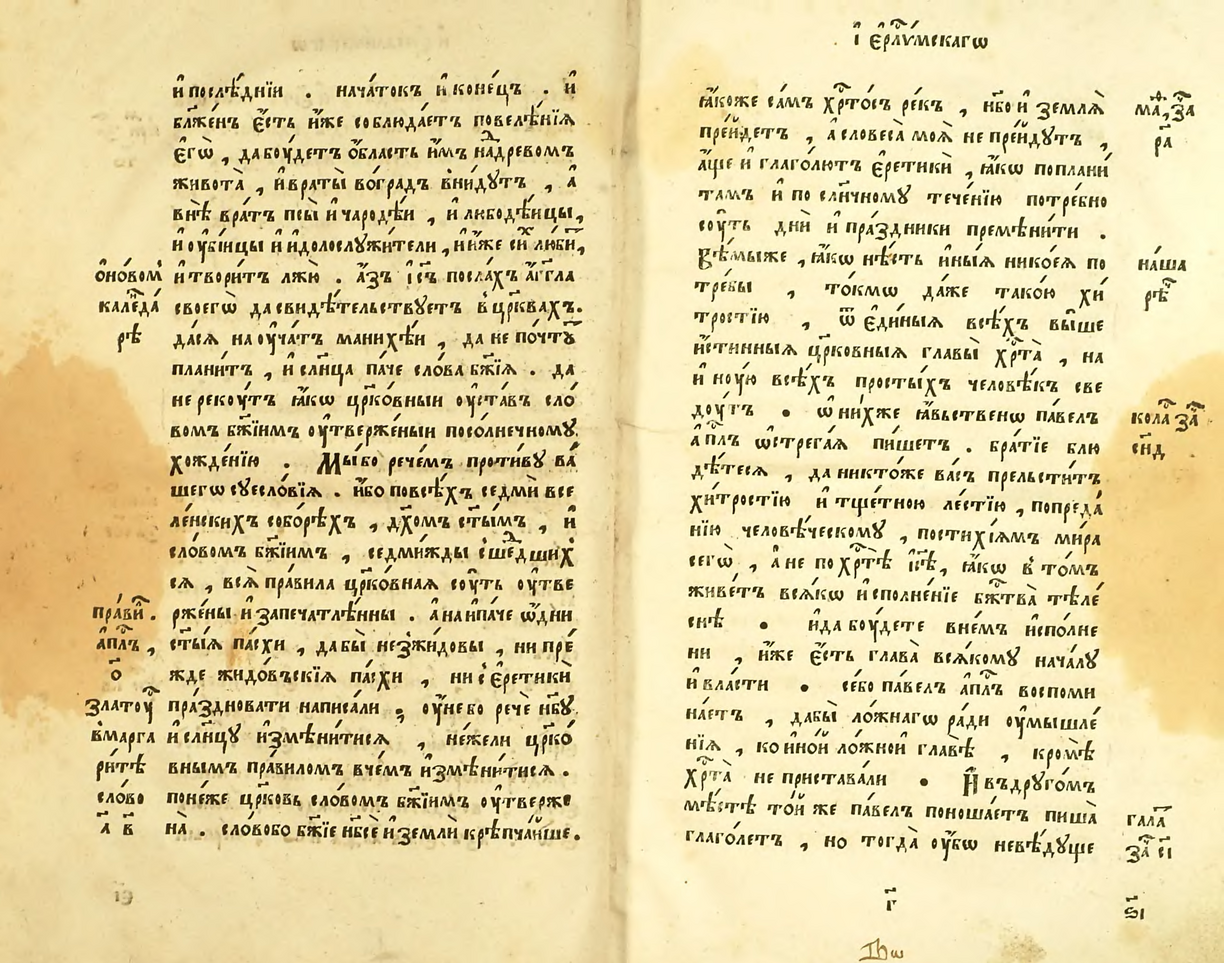 и҆ послѣ́днїи . нача́токъ и҆ коне́цъ . и҆
бл҃же́нъ є҆́сть и҆́же соблюда́етъ повелѣ́нїѧ
є҆гѡ̀ , да бꙋ́детъ ѻ҆́бласть и҆́мъ на́древомъ
живота̀ , и҆ враты̀ во́градъ вни́дꙋтъ , а҆
внѣ̀ вра́тъ псы̀ и҆ чародѣ́и , и҆ любодѣ́ицы,
и҆ ᲂу҆бі́ицы и҆ и҆долослꙋжи́тели , и҆ и҆́же сѝ люби,
ѻ҆но́вом и҆ твори́тъ лжю̀ . а҆́зъ і҆с҃ъ посла́хъ а҆́гг҃ла
кале́да своегѡ̀ да свидѣ́тельствꙋетъ в цр҃квахъ.
рѣ дасѧ наᲂуча́тъ манихѣ́и , да не почтꙋ
плани́тъ , и҆ сл҃нца па́че сло́ва бж҃їѧ . да
не рекꙋ́тъ ꙗ҆́кѡ цр҃ко́вныи ᲂу҆ста́въ сло
вомъ бж҃їимъ ᲂу҆тверже́ныи посо́лнечномꙋ
хожде́нїю . Мы́ бо рече́мъ проти́вꙋ ва́
шегѡ сꙋесло́вїѧ . и҆́бо повсѣ́хъ седмѝ все
ле́нскихъ собо́рѣхъ , дх҃омъ ст҃ы́мъ , и҆
сло́вомъ бж҃їимъ , седми́жды сше́дших
сѧ , всѧ̀ пра́вила цр҃ко́внаѧ сꙋ́ть ᲂу҆тве
пра́ви . рже́ны и҆ запечатлѣ́нны . а҆ наи́паче ѿдни
а҆пл҃ъ , ст҃ы́ѧ па́схи , дабы̀ не зжидовы̀ , ни пре́
ѻ҃ жде жидо́въскїѧ па́схи , ни с є҆ретикѝ
Златоꙋ пра́здновати написа́ли ; ᲂу҆́не бо речѐ нб҃ꙋ
в марга и҆ сл҃нцꙋ и҆змѣни́тисѧ , не́жели цр҃ко́
ритѣ внымъ пра́виломъ вче́мъ и҆змѣни́тисѧ .
слово поне́же цр҃ковь сло́вомъ бж҃їимъ ᲂу҆тверже
а҃ в҃ на̀ . сло́во бо бж҃їе нб҃сѐ и҆ землѝ крѣпча́йше.
і҆ є҆рл҃и́мскагѡ
ꙗ҆́коже са́мъ хр҃то́съ ре́къ , и҆́бо и҆ землѧ̀ ма, за
пре́йдетъ , а словеса̀ моѧ̀ не пре́йдꙋтъ , р҃а
а҆́ще и҆ глаго́лютъ є҆ретикѝ , ꙗ҆́кѡ поплани́
тамъ и҆ по сл҃нчномꙋ тече́нїю потре́бно
сꙋ́ть дни̑ и҆ пра́здники премѣни́ти .
Вѣ́мы же , ꙗ҆́кѡ нѣ́сть и҆ны́ѧ никоеѧ̀ по на́ша
тре́бы , то́кмѡ да́же тако́ю хи́ рѣ
тростїю , ѿ є҆ди́ныѧ всѣ́хъ вы́ше
и҆́стинныѧ цр҃ко́вныѧ главы̀ хр҃та̀ , на
и҆ нꙋ́ю всѣ́хъ просты́хъ человѣ́къ све
дꙋ́тъ . ѡ҆ ни́хже ꙗ҆́вьственѡ па́велъ кола за
а҆п҃лъ ѡ҆стрега́ѧ пи́шетъ . бра́тїе блю сн҃д
дѣ́тесѧ , да никто́же ва́съ прельсти́тъ
хи́тростїю и҆ тще́тною ле́стїю , попреда́
нїю человѣ́ческомꙋ , постихі́ѧмъ ми́ра
сегѡ̀ , а҆ не по хр҃тѣ̀ і҆с҃ѣ, ꙗ҆́кѡ в то́мъ
живе́тъ всѧ́кѡ и҆сполне́нїе бж҃тва̀ тѣле́
снѣ . и҆ да бꙋ́дете вне́мъ и҆спо́лне
ни , и҆́же є҆́сть глава̀ всѧ́комꙋ нача́лꙋ
и҆ вла́сти . се бо па́велъ а҆п҃лъ воспоми
на́етъ , дабы̀ ло́жнагѡ ра́ди ᲂу҆мышле́
нїѧ , ко и҆но́й ло́жной главѣ̀ , кро́мѣ
хр҃та̀ не пристава́ли . И҆ въ дрꙋго́мъ
мѣ́стѣ то́й же па́велъ поноша́етъ пиша̀ гала
глаго́летъ , но тогда̀ ᲂу҆́бѡ невѣ́дꙋще за є҃і
г҃
ѕ҃і